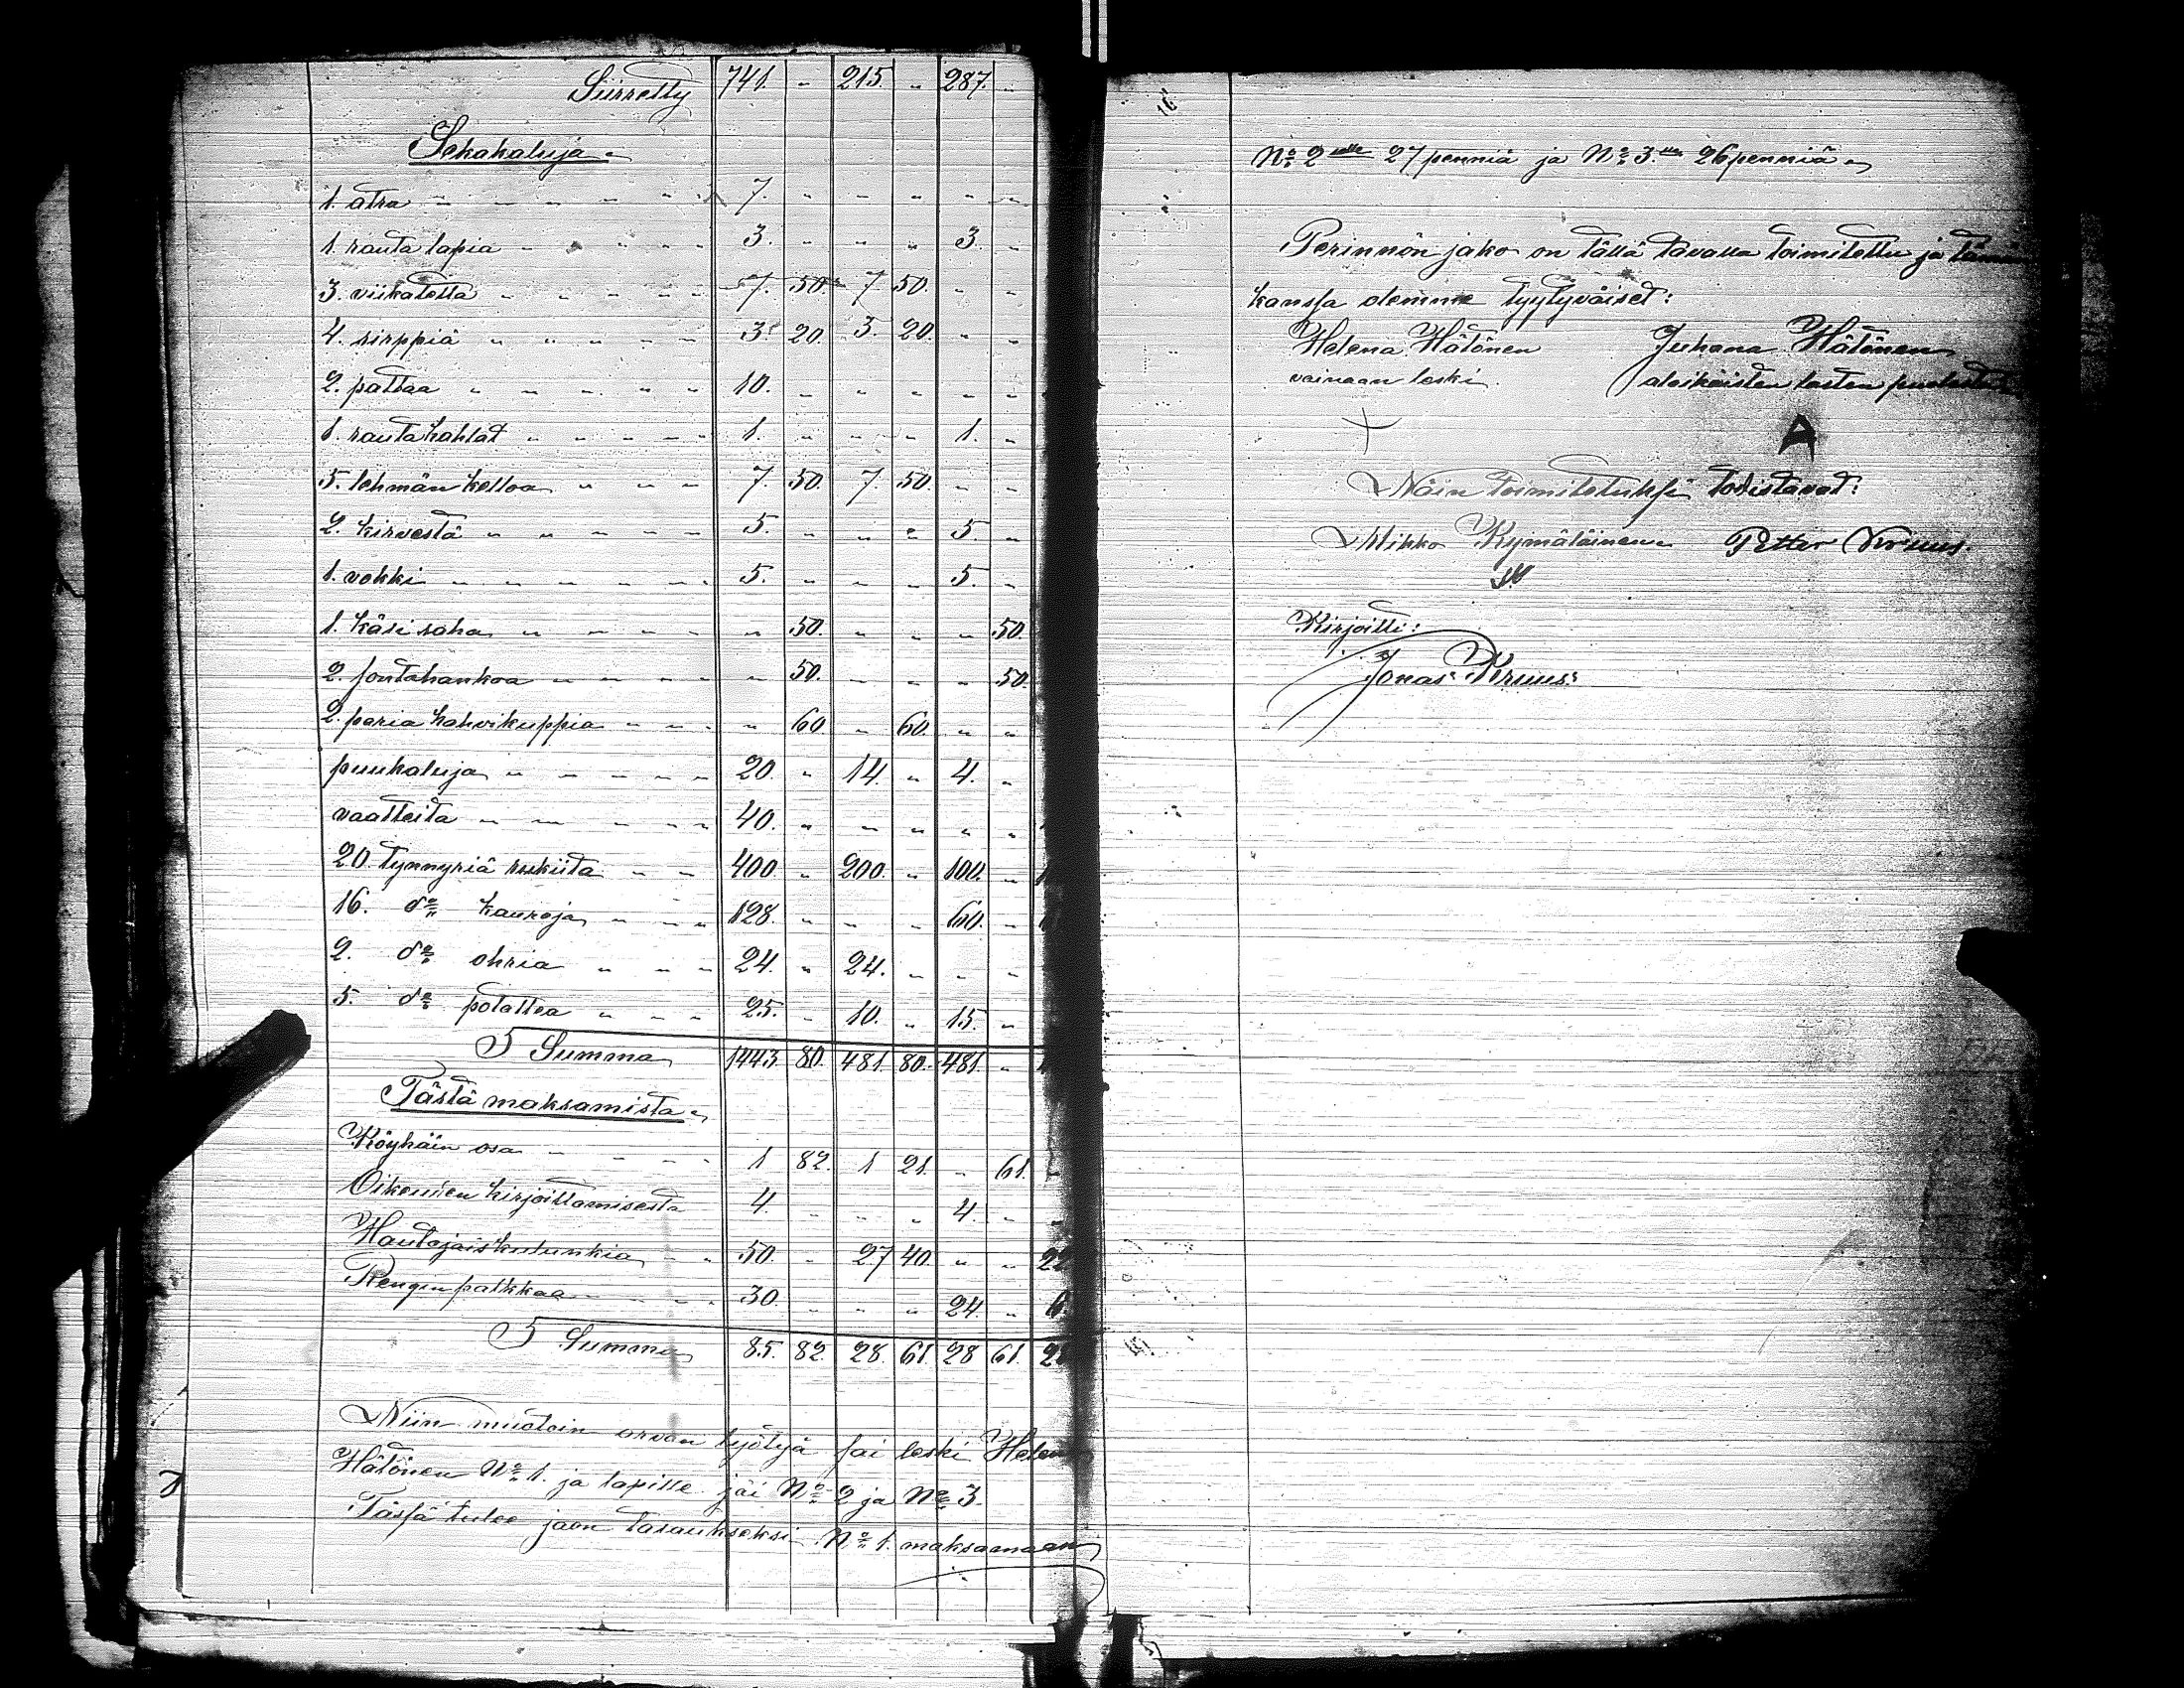 Siirretty 741. " 215. " 287. "
Sekakaluja.
1. atra " " " " " " 7. " " " " "
1. rauta lapia " " " " " 3. " " " 3. "
3. viikatetta " " " " " 7. 50. 7 50. " "
4. sirppiä " " " " " 3. 20. 3. 20. " "
2. pataa " " " " " " 10. " " " " "
1. rauta kahlat " " " " " 1. " " " 1. "
5. lehmän kelloa " " " 7. 50. 7. 50. " "
2. kirvestä " " " " " 5. " " " 5. "
1. vokki " " " " " " 5. " " " 5. "
1. käsi saha " " " " " " 50. " " " 50.
2. sontahankoa " " " " " " 50. " " " 50.
2. paria kahvikuppia " " " " 60 " 60. " "
puukaluja " " " " " 20. " 14. " 4. "
vaatteita " " " " " 40. " " " " "
20. tynnyriä rukiita " " 400. " 200. " 100. " 1
16. do kauroja " " " 128. " " " 60. "
2. do ohria " " " 24. " 24. " " "
5. do potattea " " " 25. " 10. " 15. "
Summa 1443. 80. 481. 80. 481. "
Tästä maksamista.
Köyhäin osa " " " " 1 82. 1 21. " 61. "
Oikeuden kirjoittamisesta 4. " " " 4. " "
Hautajaiskulunkia " " 50. " 27 40. " " 22
Rengin palkkaa " " " " 30. " " " 24. " 6.
Summa 85. 82. 28. 61. 28 61. 28
Niin muotoin arvan lyötyä sai leski Helena
Hätönen No 1. ja lapille jäi No 2 ja No 3.
Tässä tulee jaon tasaukseksi No 1. maksamaan
No 2lle 27 penniä ja No 3.lle 26 penniä.
Perinnön jako on tällä tavalla toimitettu ja tämän
kanssa olemme tyytyväiset:
Helena Hätönen Juhana Hätönen
vainaan leski. alaikäisten lasten puolesta
+ A
Näin toimitetuksi todistavat:
Mikko Kymäläinen Petter Kruus.
Kirjoitti:
Jonas Kruus: